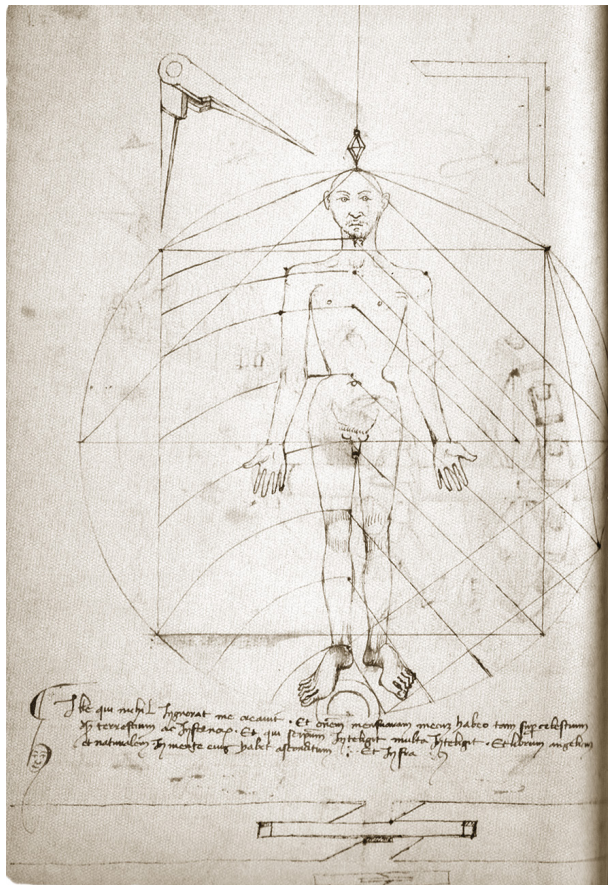 Ille qui nichil Ingnorat me creavit . Et omnem mensuram mecum habeo tam sup celestium
terrestrium ac Infernor . Et qui seipsum Inteligit multa Inteligit . Et librum angelicum
et naturalem In mente eius habet asconditum : Et Infra